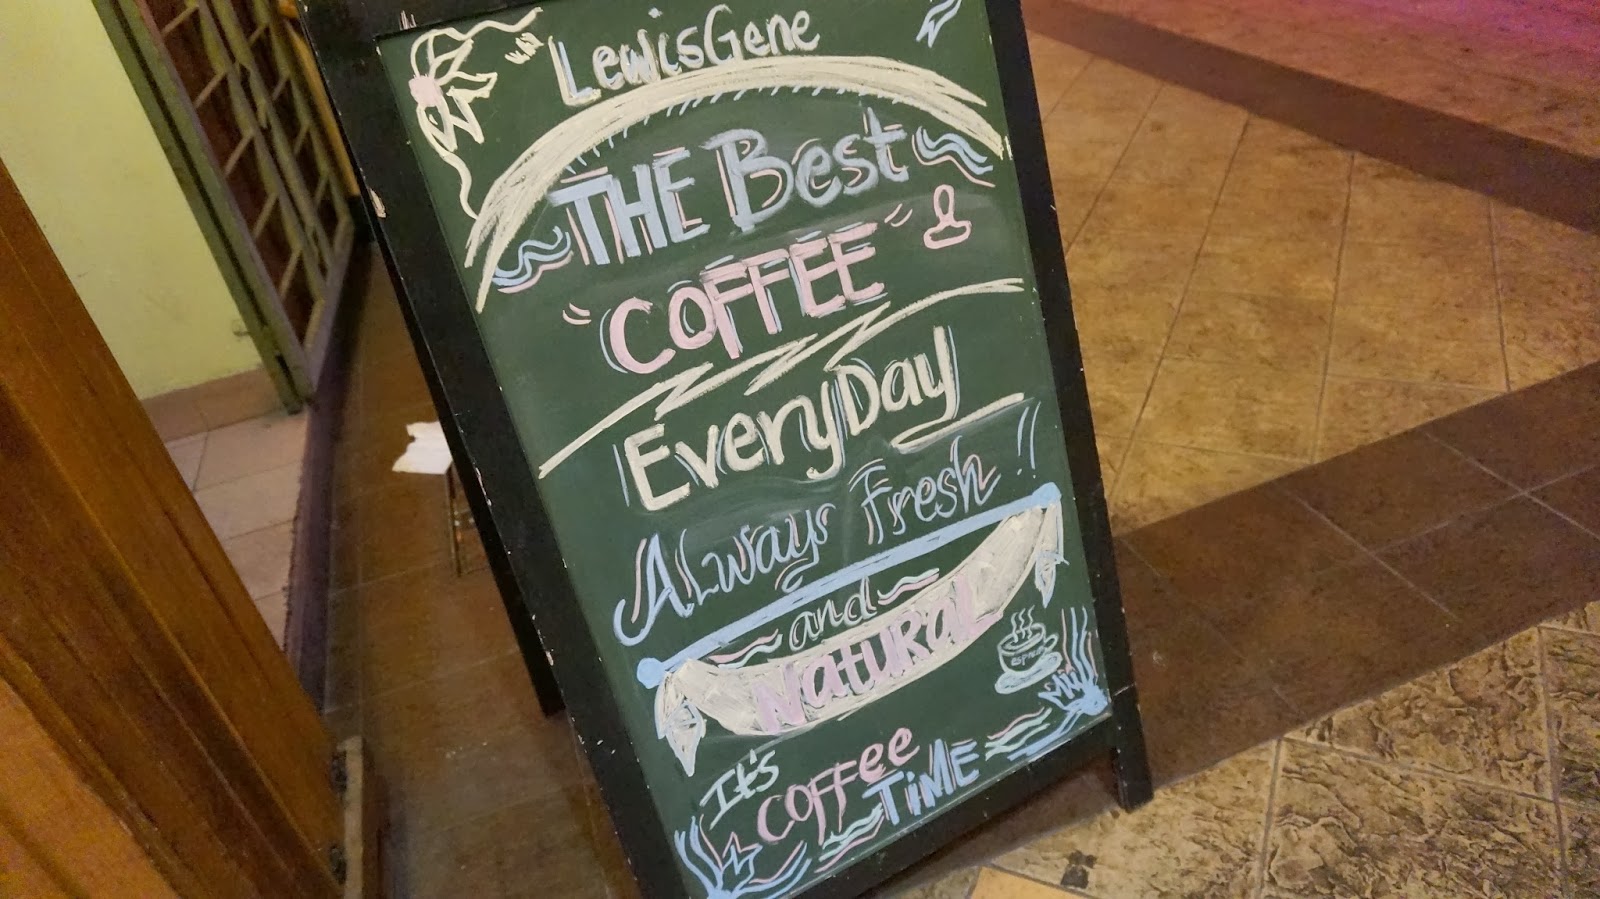 LewisGene
THE Best
"COFFEE"
EveryDay
Always Fresh!!
and
NatURaL
espresso
It's
COFFee
TiME